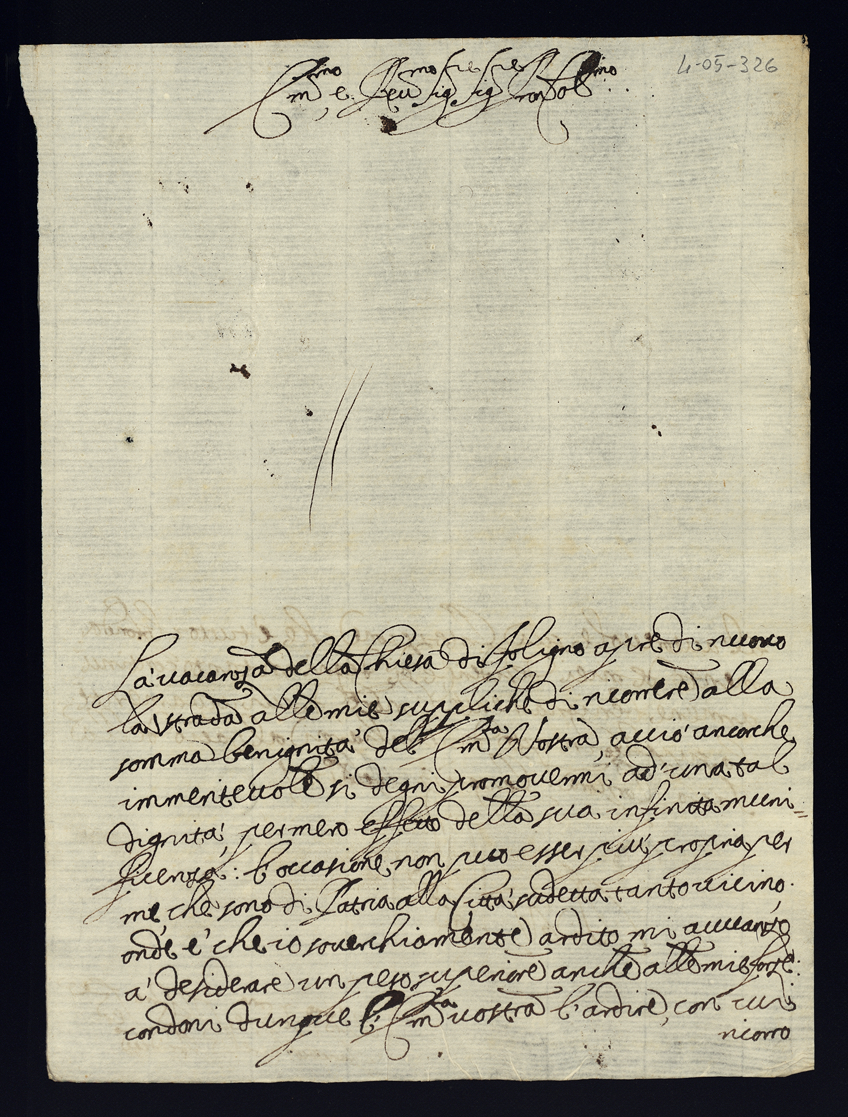 4-05-326
Em.mo e Rev.mo Sig.re Sig.re Pron Col.mo
La vacanza della Chiesa di Foligno apre di nuovo
la strada alle mie suppliche di ricorrere alla
somma benignità del Em.za Vostra, acciò ancorche
immeritevole si degni promovermi ad una tal
dignità, per mero effetto della sua infinita muni=
ficenza: l'occasione non puo esser più propria per
me, che sono di Patria alla Città sudetta tanto vicino.
onde e' che io soverchiamente ardito mi avvanzo
a' desiderare un peso superiore anche alle mie forze:
condoni dunque l'Em.za vostra l'ardire, con cui
ricorro